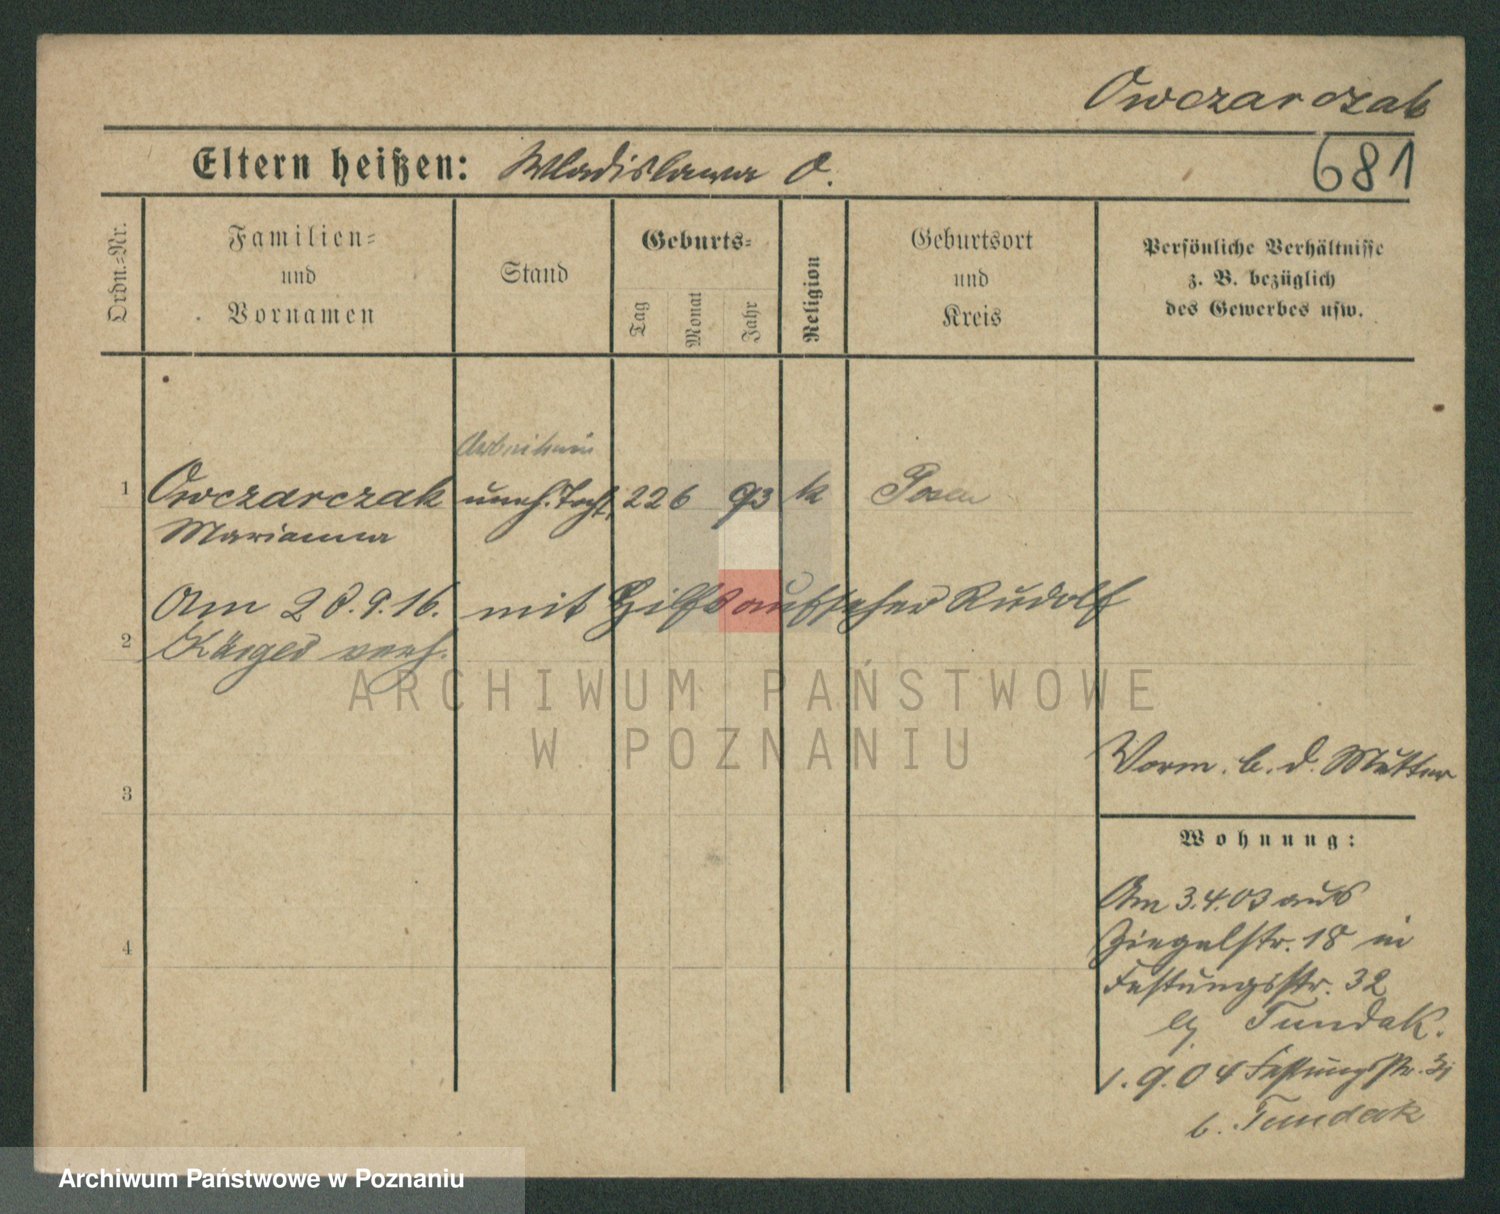 Owczarczak
Eltern heißen: Wladislawa O.
681
Ordn.-Nr.
Familien-
und
Vornamen
Stand
Geburts-
Tag
Monat
Jahr
Religion
Geburtsort
und
Kreis
Persönliche Verhältnisse
z. B. bezüglich
des Gewerbes usw.
Arbeiterin
1 Owczarczak uneh. Tocht. 22 6 93 k Posen
Marianna
Am 28.9.16. mit Hilfsaufseher Rudolf
2 Kärger verh.
ARCHIWUM PAŃSTWOWE
W POZNANIU
Vorm. b. d. Mutter
3
Wohnung:
Am 3.4.03 aus
Ziegelstr. 18 in
4
Festungsstr. 32
Tundak.
1.9.04 Festungsstr.
b. Tundak
Archiwum Państwowe w Poznaniu